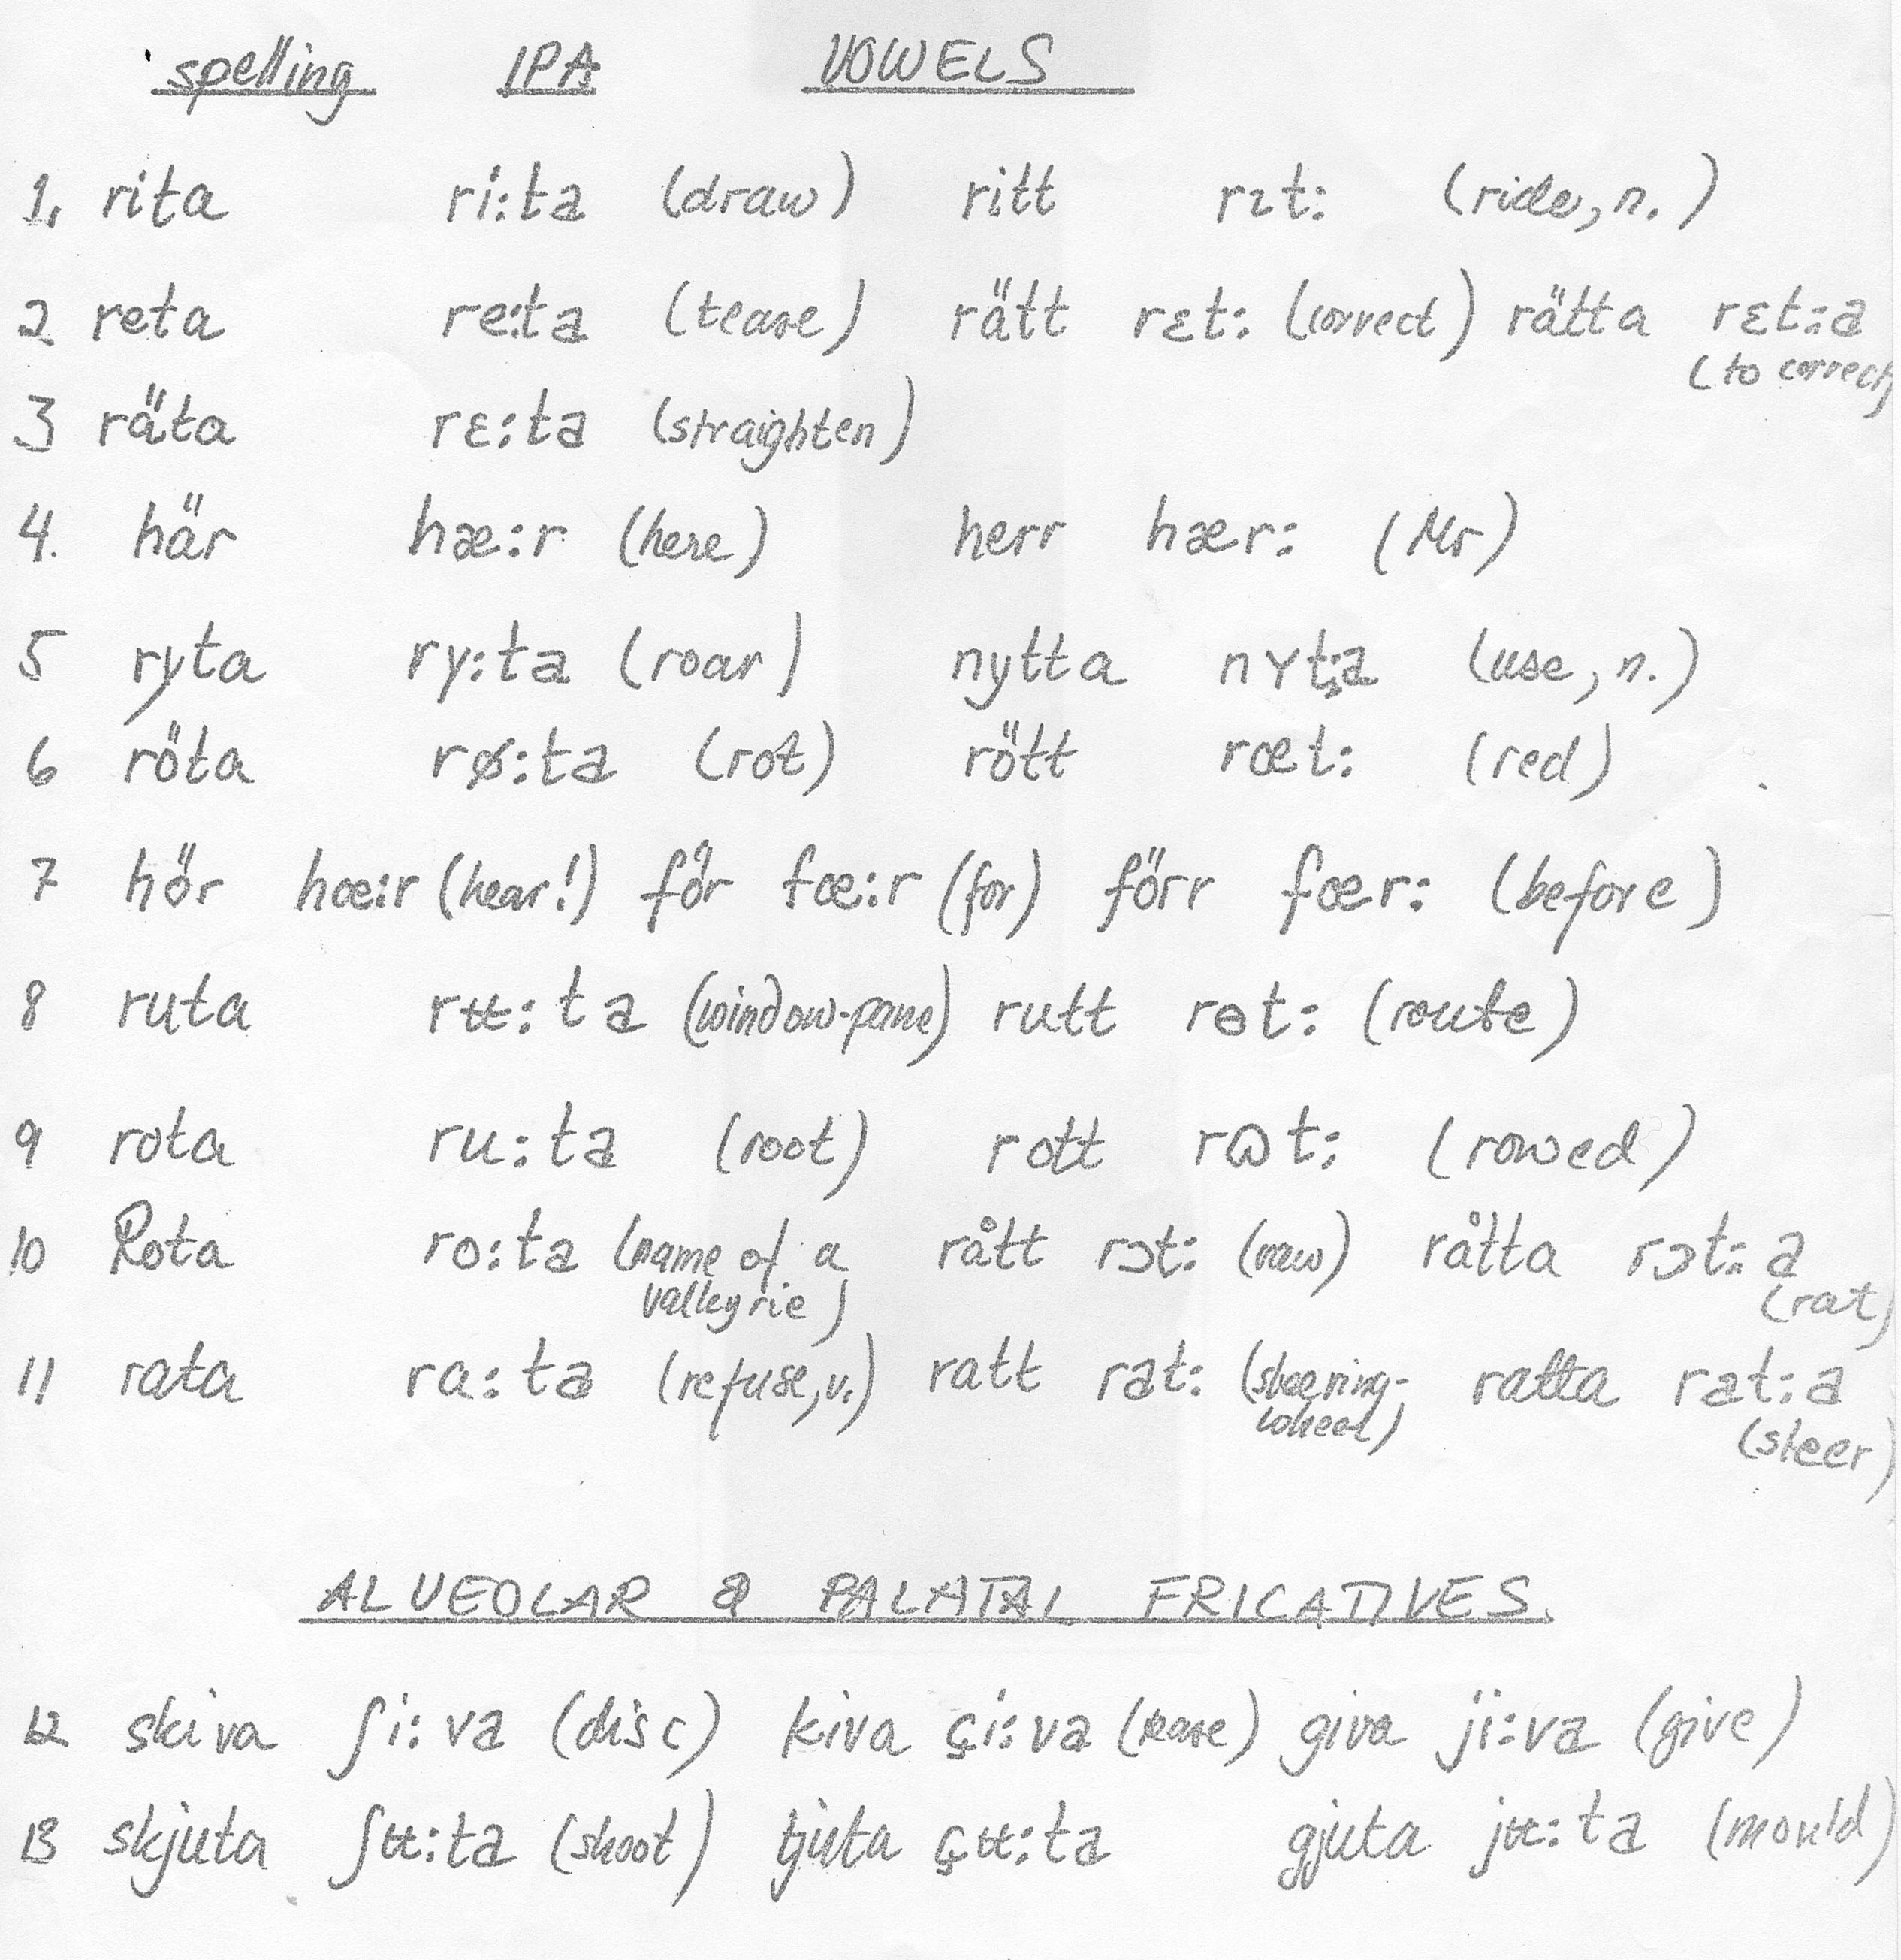 spelling IPA VOWELS
1. rita ri:ta (draw) ritt rɪt: (ride, n.)
2 reta re:ta (tease) rätt rɛt: (correct) rätta rɛt:a
(to correct)
3 räta rɛ:ta (straighten)
4. här hæ:r (here) herr hær: (Mr)
5 ryta ry:ta (roar) nytta nʏt:a (use, n.)
6 röta rø:ta (rot) rött rœt: (red)
7 hör hœ:r (hear!) för fœ:r (for) förr fœr: (before)
8 ruta rʉ:ta (window-pane) rutt rɵt: (route)
9 rota ru:ta (root) rott rɷt: (rowed)
10 Rota ro:ta (name of a rått rɔt: (raw) råtta rɔt:a
valkyrie) (rat)
11 rata rɑ:ta (refuse, v.) ratt rat: (steering- ratta rat:a
wheel) (steer)
ALVEOLAR & PALATAL FRICATIVES.
12 skiva ʃi:va (disc) kiva çi:va (tease) giva ji:va (give)
13 skjuta ʃʉ:ta (shoot) tjuta çʉ:ta gjuta jʉ:ta (mould)